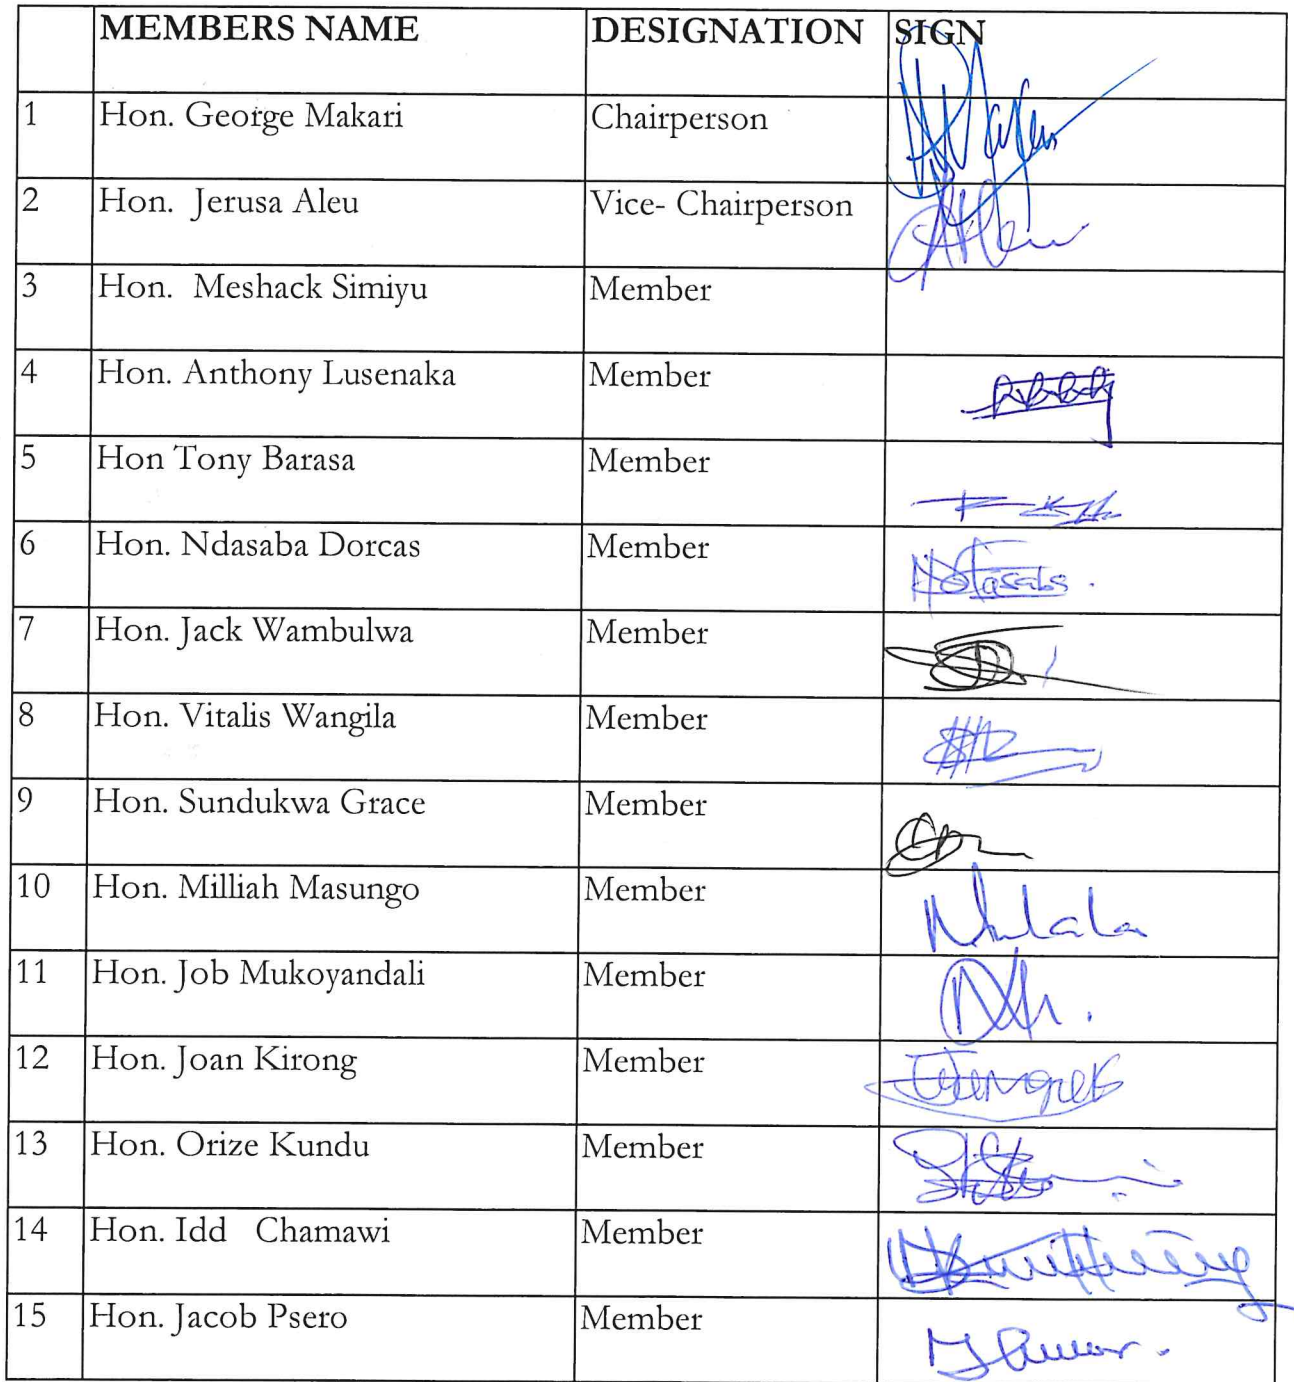 MEMBERS NAME DESIGNATION SIGN
1 Hon. George Makari Chairperson
2 Hon. Jerusa Aleu Vice- Chairperson
3 Hon. Meshack Simiyu Member
4 Hon. Anthony Lusenaka Member
5 Hon Tony Barasa Member
6 Hon. Ndasaba Dorcas Member
7 Hon. Jack Wambulwa Member
8 Hon. Vitalis Wangila Member
9 Hon. Sundukwa Grace Member
10 Hon. Milliah Masungo Member
11 Hon. Job Mukoyandali Member
12 Hon. Joan Kirong Member
13 Hon. Orize Kundu Member
14 Hon. Idd Chamawi Member
15 Hon. Jacob Psero Member